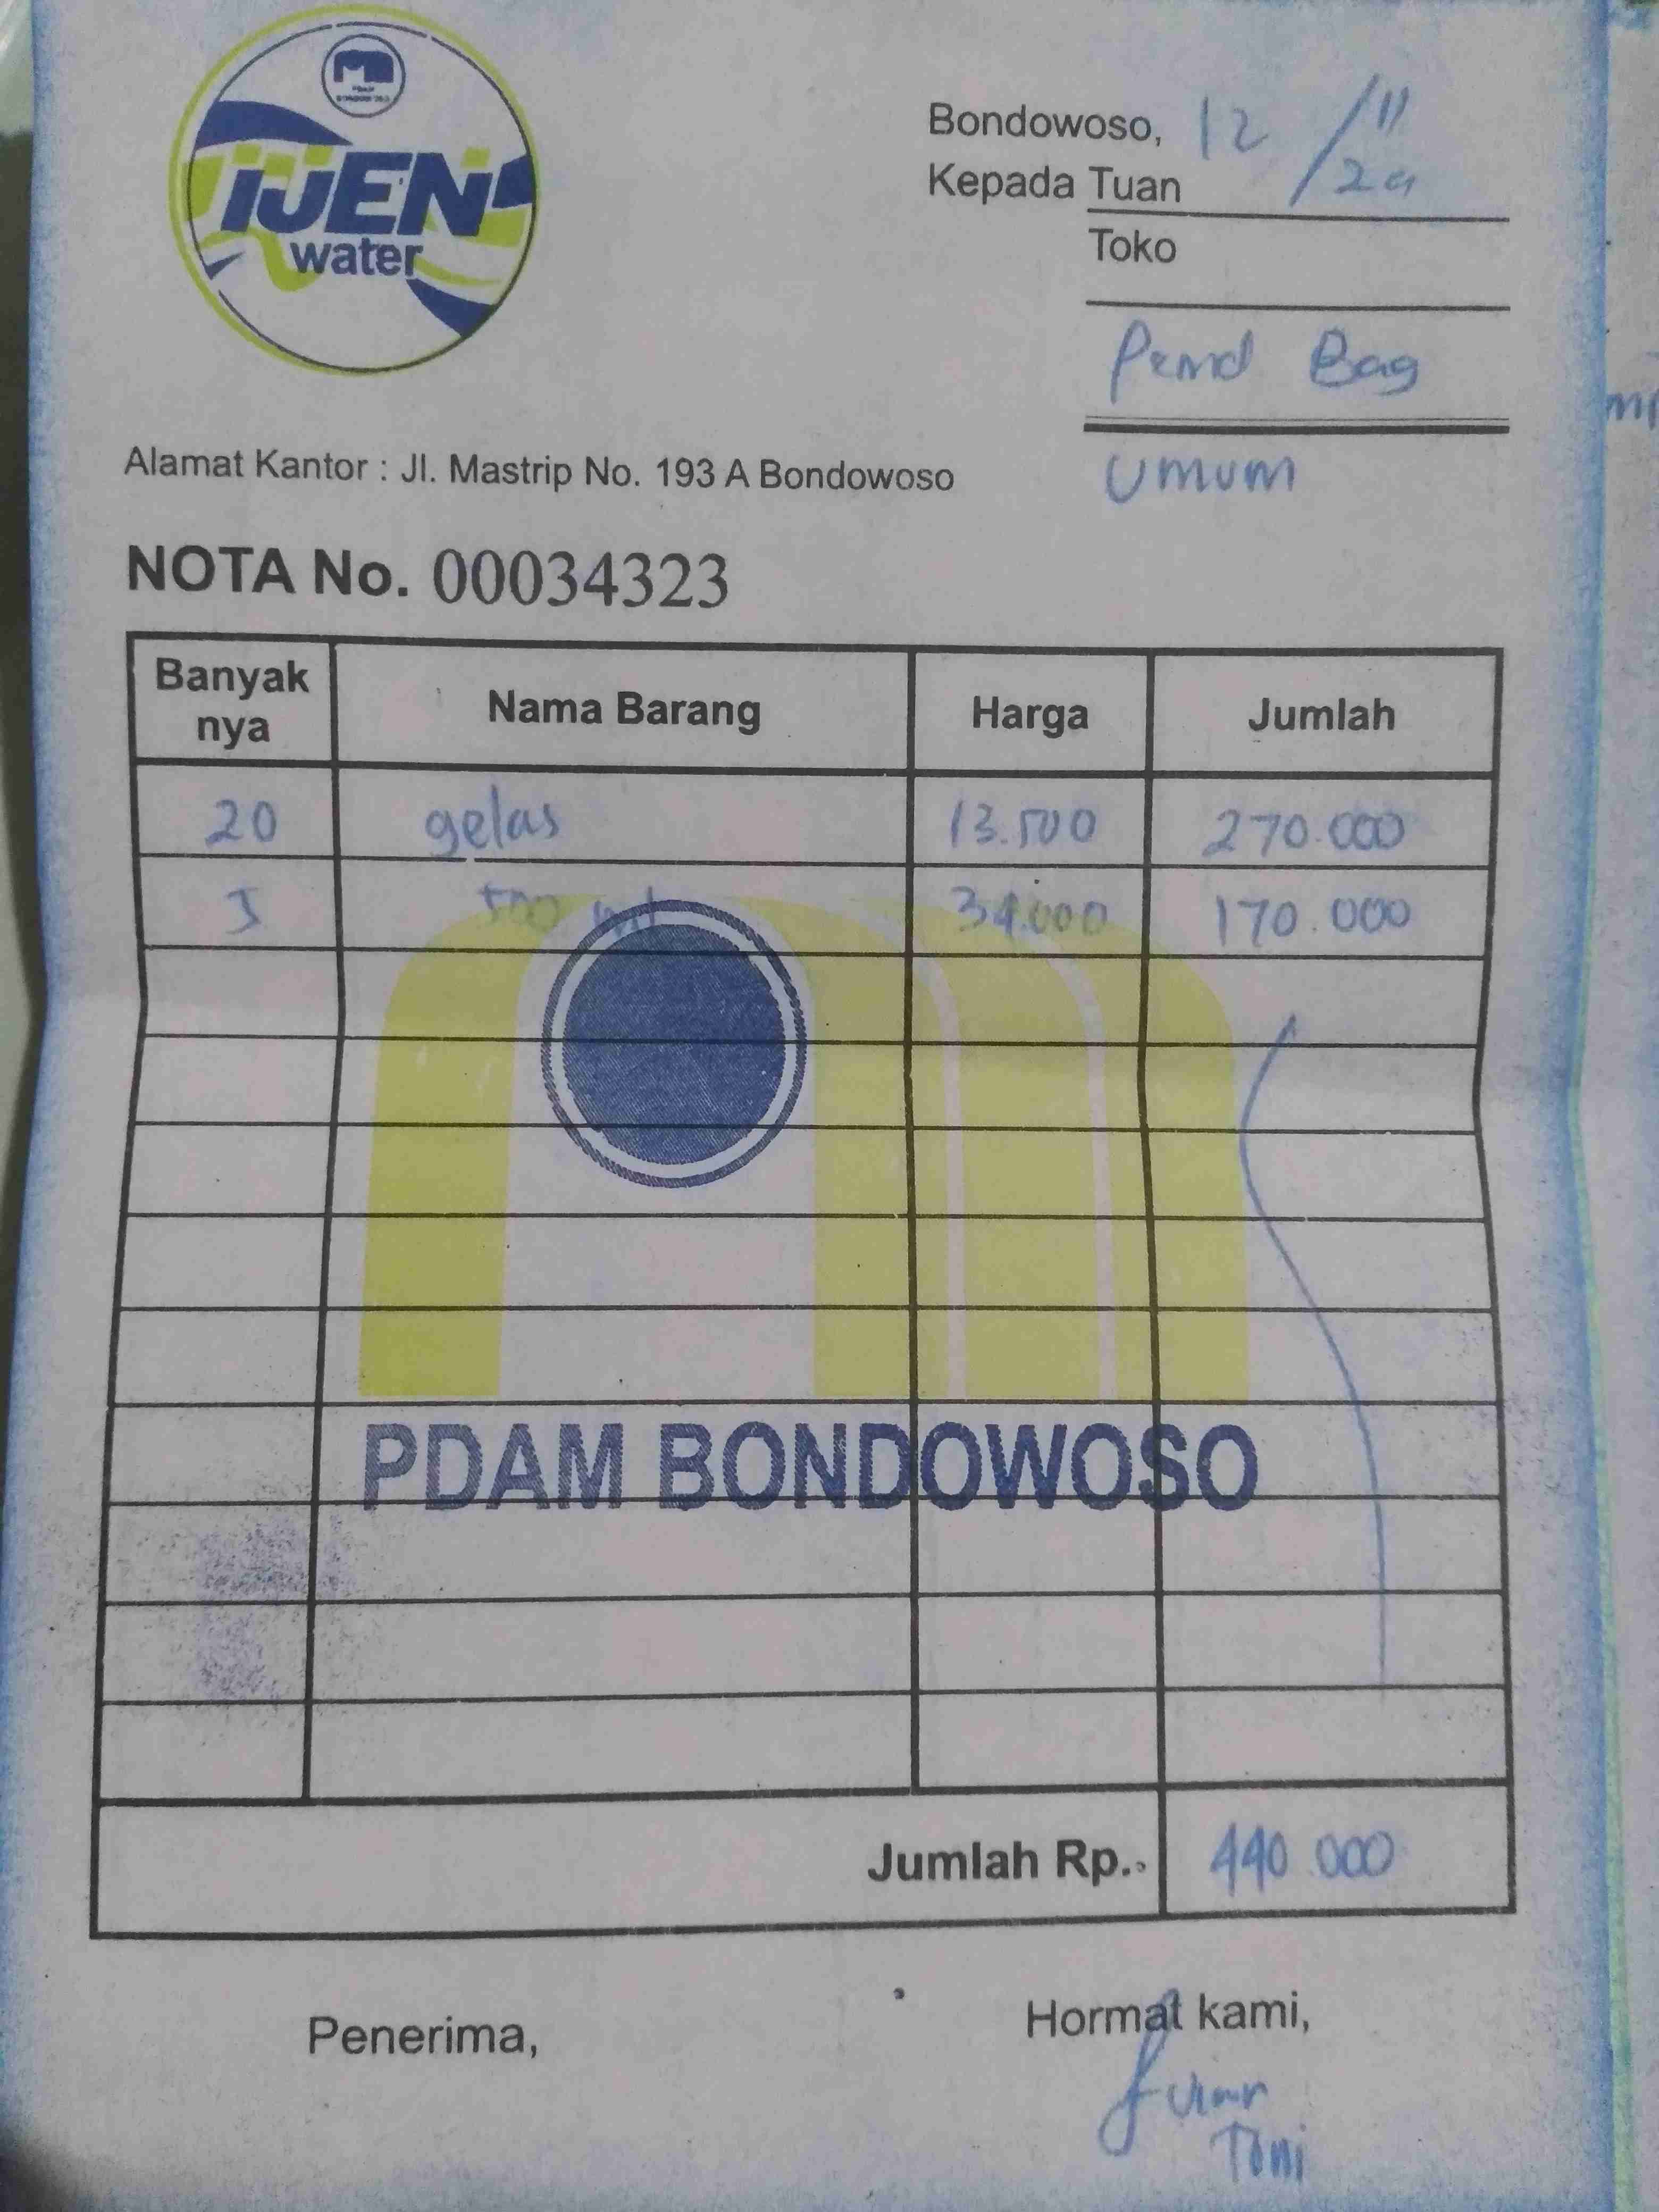 IJEN
water
Bondowoso, 12/11/24
Kepada Tuan
Toko
Pemd Bag
Umum
Alamat Kantor : Jl. Mastrip No. 193 A Bondowoso
NOTA No. 00034323
Banyak nya Nama Barang Harga Jumlah
20 gelas 13.500 270.000
5 500 ml 34.000 170.000
PDAM BONDOWOSO
Jumlah Rp. 440.000
Penerima, Hormat kami,
Toni